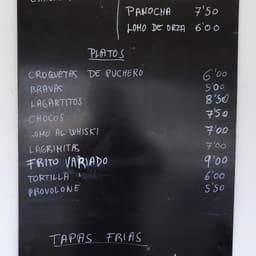 PANOCHA 7'50
LOMO DE ORZA 6'00
PLATOS
CROQUETAS DE PUCHERO 6'00
BRAVAS 5'00
LAGARTITOS 8'50
CHOCOS 7'50
LOMO AL WHISKI 7'00
LAGRIMITAS 7'00
FRITO VARIADO 9'00
TORTILLA 6'00
PROVOLONE 5'50
TAPAS FRIAS